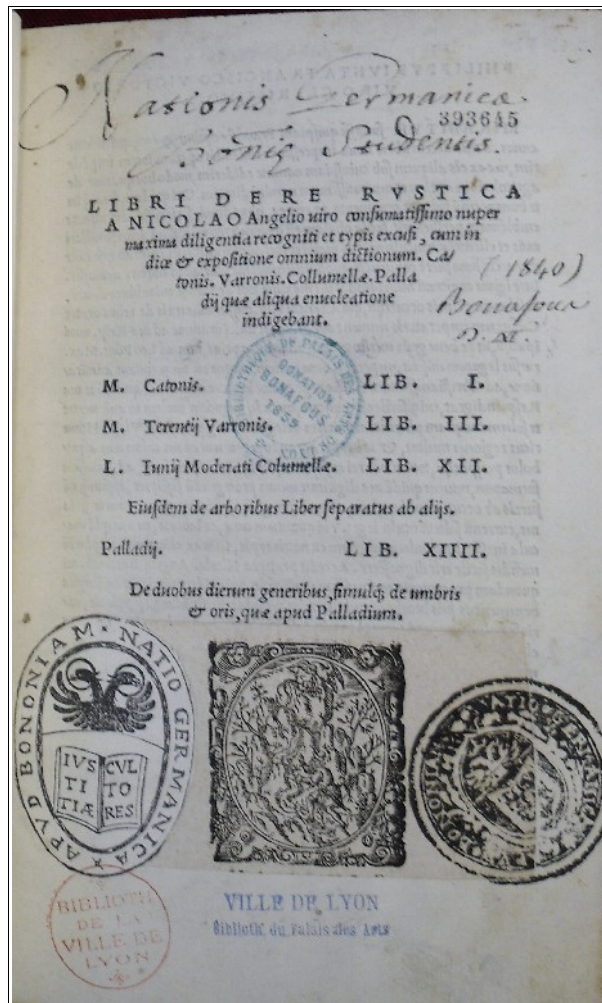 Nationis Germanicæ
393645
Bononię Studentis.
LIBRI DE RE RVSTICA
A NICOLAO Angelio uiro consumatissimo nuper
maxima diligentia recogniti et typis excusi, cum in
dice & expositione omnium dictionum. Ca/
tonis. Varronis. Collumellæ. Palla
dij quæ aliqua enucleatione
indigebant.
(1840)
Bonafous
D. D.
DONATION
BONAFOUS
1859
M. Catonis. LIB. I.
M. Terentij Varronis. LIB. III.
L. Iunij Moderati Columellæ. LIB. XII.
Eiusdem de arboribus Liber separatus ab alijs.
Palladij. LIB. XIIII.
De duobus dierum generibus, simulq; de umbris
& oris, quæ apud Palladium.
APVD BONONIAM · NATIO GERMANICA
IVS CVL
TI TO
TIÆ RES
VILLE DE LYON
Biblioth. du Palais des Arts
BIBLIOTH
DE LA
VILLE DE
LYON